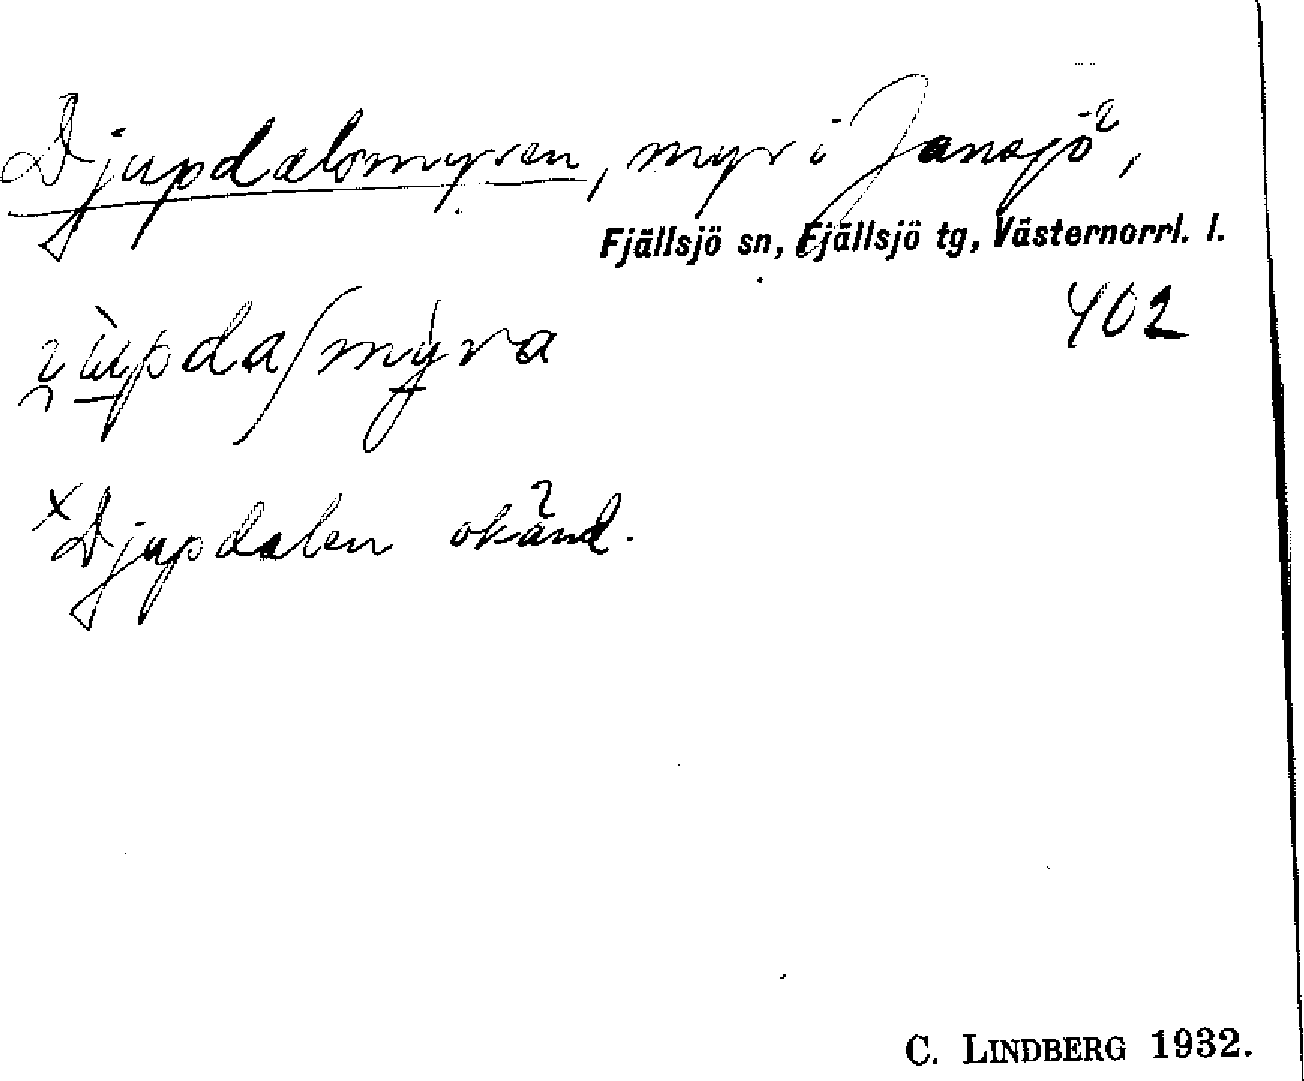 Djupdalsmyren, myr i Jansjö,
Fjällsjö sn, Fjällsjö tg, Västernorrl. l.
402
*Djupdalen okänd.
C. LINDBERG 1932.